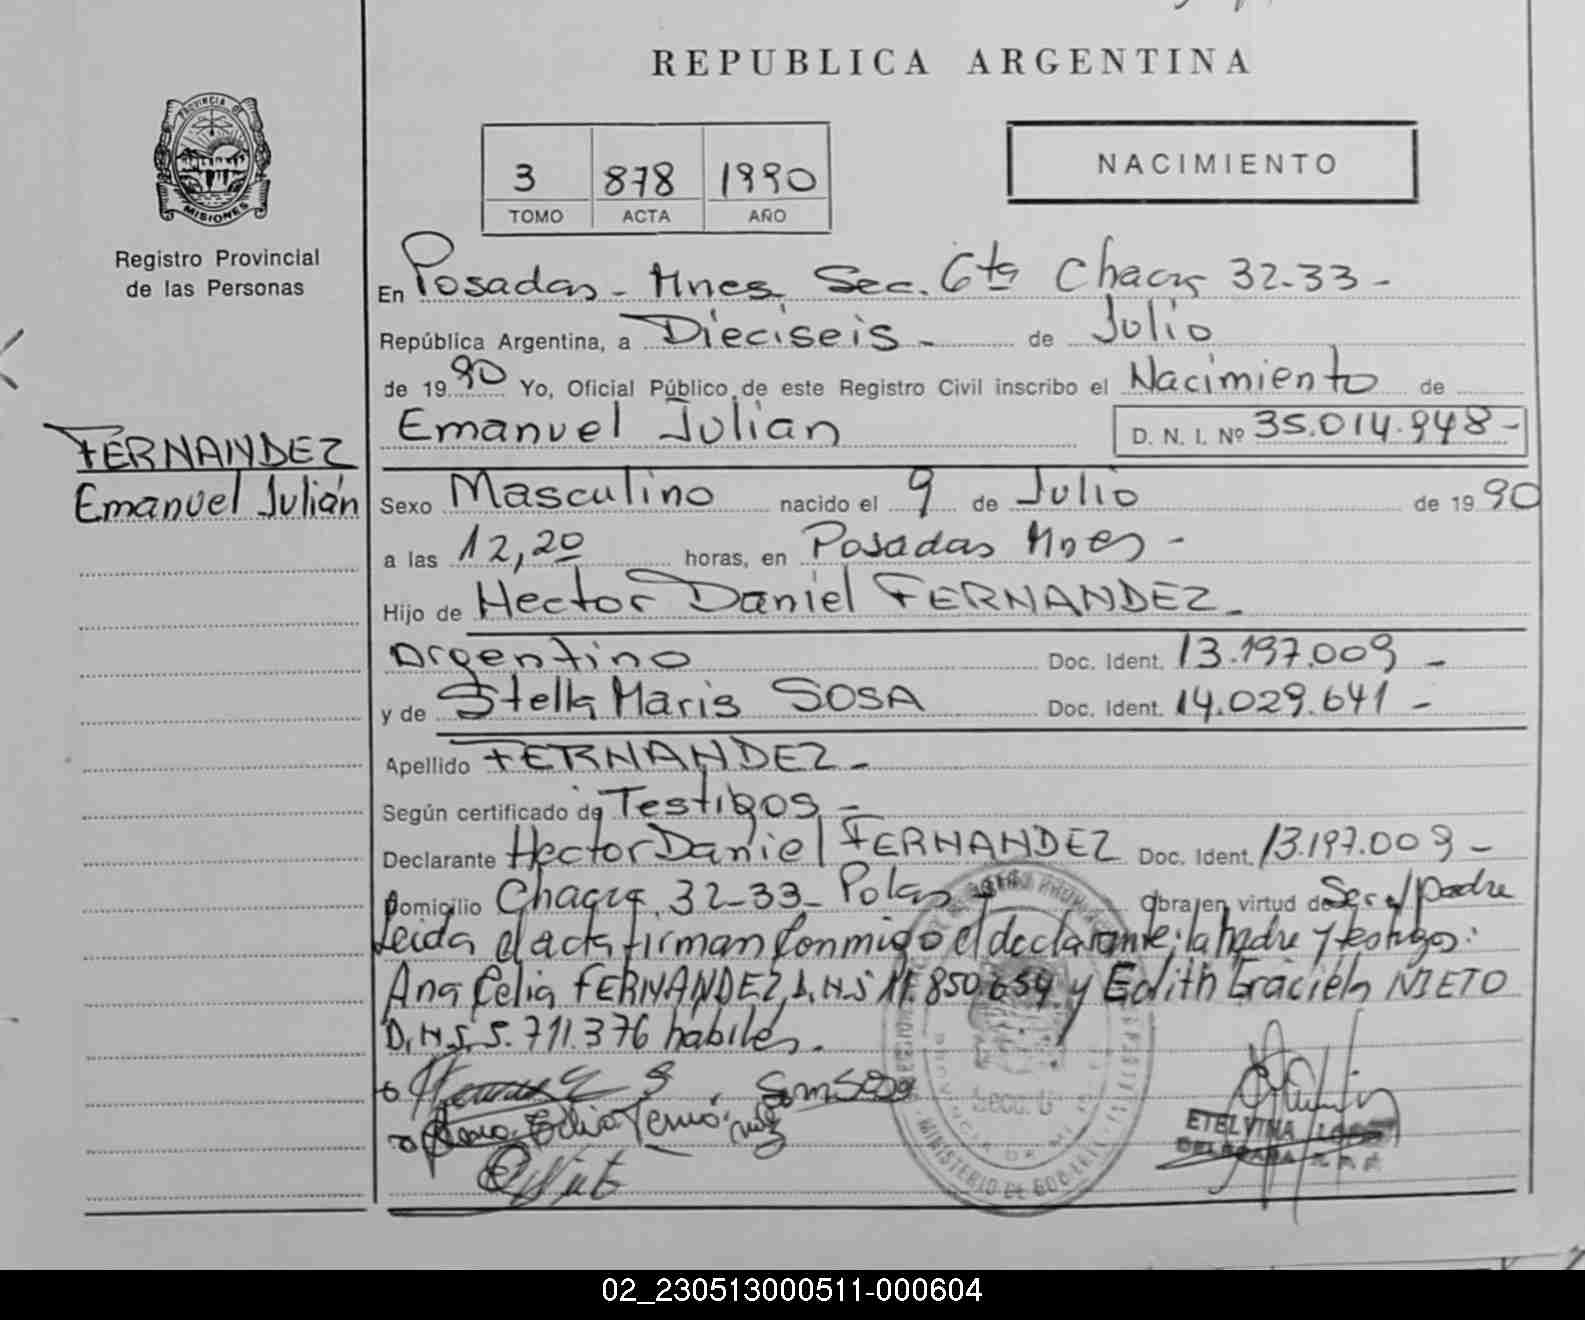 REPUBLICA ARGENTINA
PROVINCIA DE
MISIONES
Registro Provincial
de las Personas
3 878 1990
TOMO ACTA AÑO
NACIMIENTO
En Posadas - Mnes Sec. 6ta Chacra 32-33 -
República Argentina, a Dieciseis - de Julio
de 19 90 Yo, Oficial Público de este Registro Civil inscribo el Nacimiento de
Emanuel Julian D. N. I. Nº 35.014.948 -
FERNANDEZ
Emanuel Julián
Sexo Masculino nacido el 9 de Julio de 19 90
a las 12,20 horas, en Posadas Mnes -
Hijo de Hector Daniel FERNANDEZ -
Argentino Doc. Ident. 13.197.009 -
y de Stella Maris SOSA Doc. Ident. 14.029.641 -
Apellido FERNANDEZ -
Según certificado de Testigos -
Declarante Hector Daniel FERNANDEZ Doc. Ident. 13.197.009 -
Domicilio Chacra 32-33 - Pdas Obra en virtud de Ser el padre
Leida el acta firman conmigo el declarante; la madre y testigos:
Ana Celia FERNANDEZ, D.N.I 11.850.659 y Edith Graciela NIETO
D.N.I. 5.711.376 habiles.
Secc. 6
MINISTERIO DE GOBIERNO
ETELVINA
DELEGADA
02_230513000511-000604